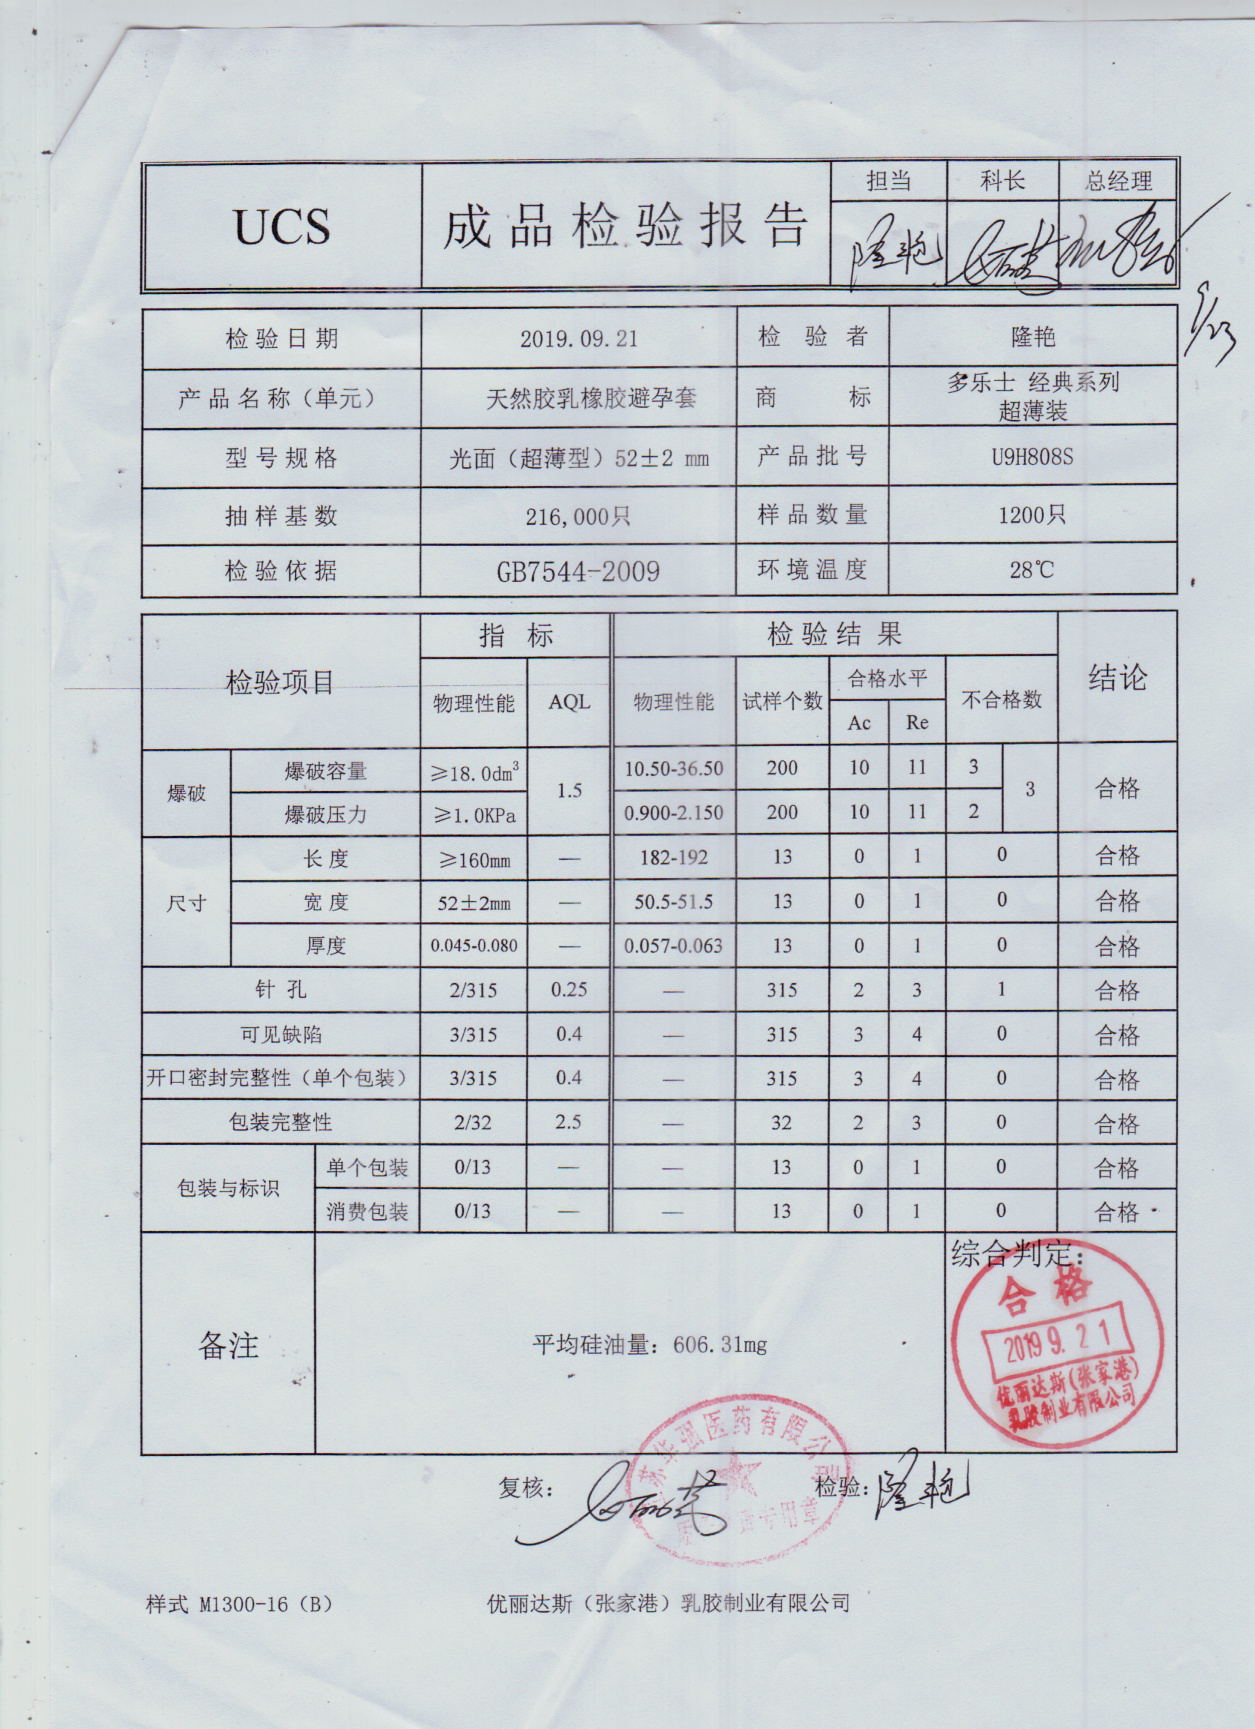 UCS
成品检验报告
担当 科长 总经理
隆艳
9/23
检验日期 2019.09.21 检验者 隆艳
产品名称（单元） 天然胶乳橡胶避孕套 商标 多乐士 经典系列
超薄装
型号规格 光面（超薄型）52±2 mm 产品批号 U9H808S
抽样基数 216,000只 样品数量 1200只
检验依据 GB7544-2009 环境温度 28℃
检验项目 指标 检验结果 结论
物理性能 AQL 物理性能 试样个数 合格水平 不合格数
Ac Re
爆破 爆破容量 ≥18.0dm³ 1.5 10.50-36.50 200 10 11 3 3 合格
爆破压力 ≥1.0KPa 0.900-2.150 200 10 11 2
尺寸 长度 ≥160mm — 182-192 13 0 1 0 合格
宽度 52±2mm — 50.5-51.5 13 0 1 0 合格
厚度 0.045-0.080 — 0.057-0.063 13 0 1 0 合格
针孔 2/315 0.25 — 315 2 3 1 合格
可见缺陷 3/315 0.4 — 315 3 4 0 合格
开口密封完整性（单个包装） 3/315 0.4 — 315 3 4 0 合格
包装完整性 2/32 2.5 — 32 2 3 0 合格
包装与标识 单个包装 0/13 — — 13 0 1 0 合格
消费包装 0/13 — — 13 0 1 0 合格
备注 平均硅油量：606.31mg
综合判定：
合格
2019 9. 21
优丽达斯(张家港)
乳胶制业有限公司
苏华强医药有限公司
专用章
复核： 检验：隆艳
样式 M1300-16（B） 优丽达斯（张家港）乳胶制业有限公司